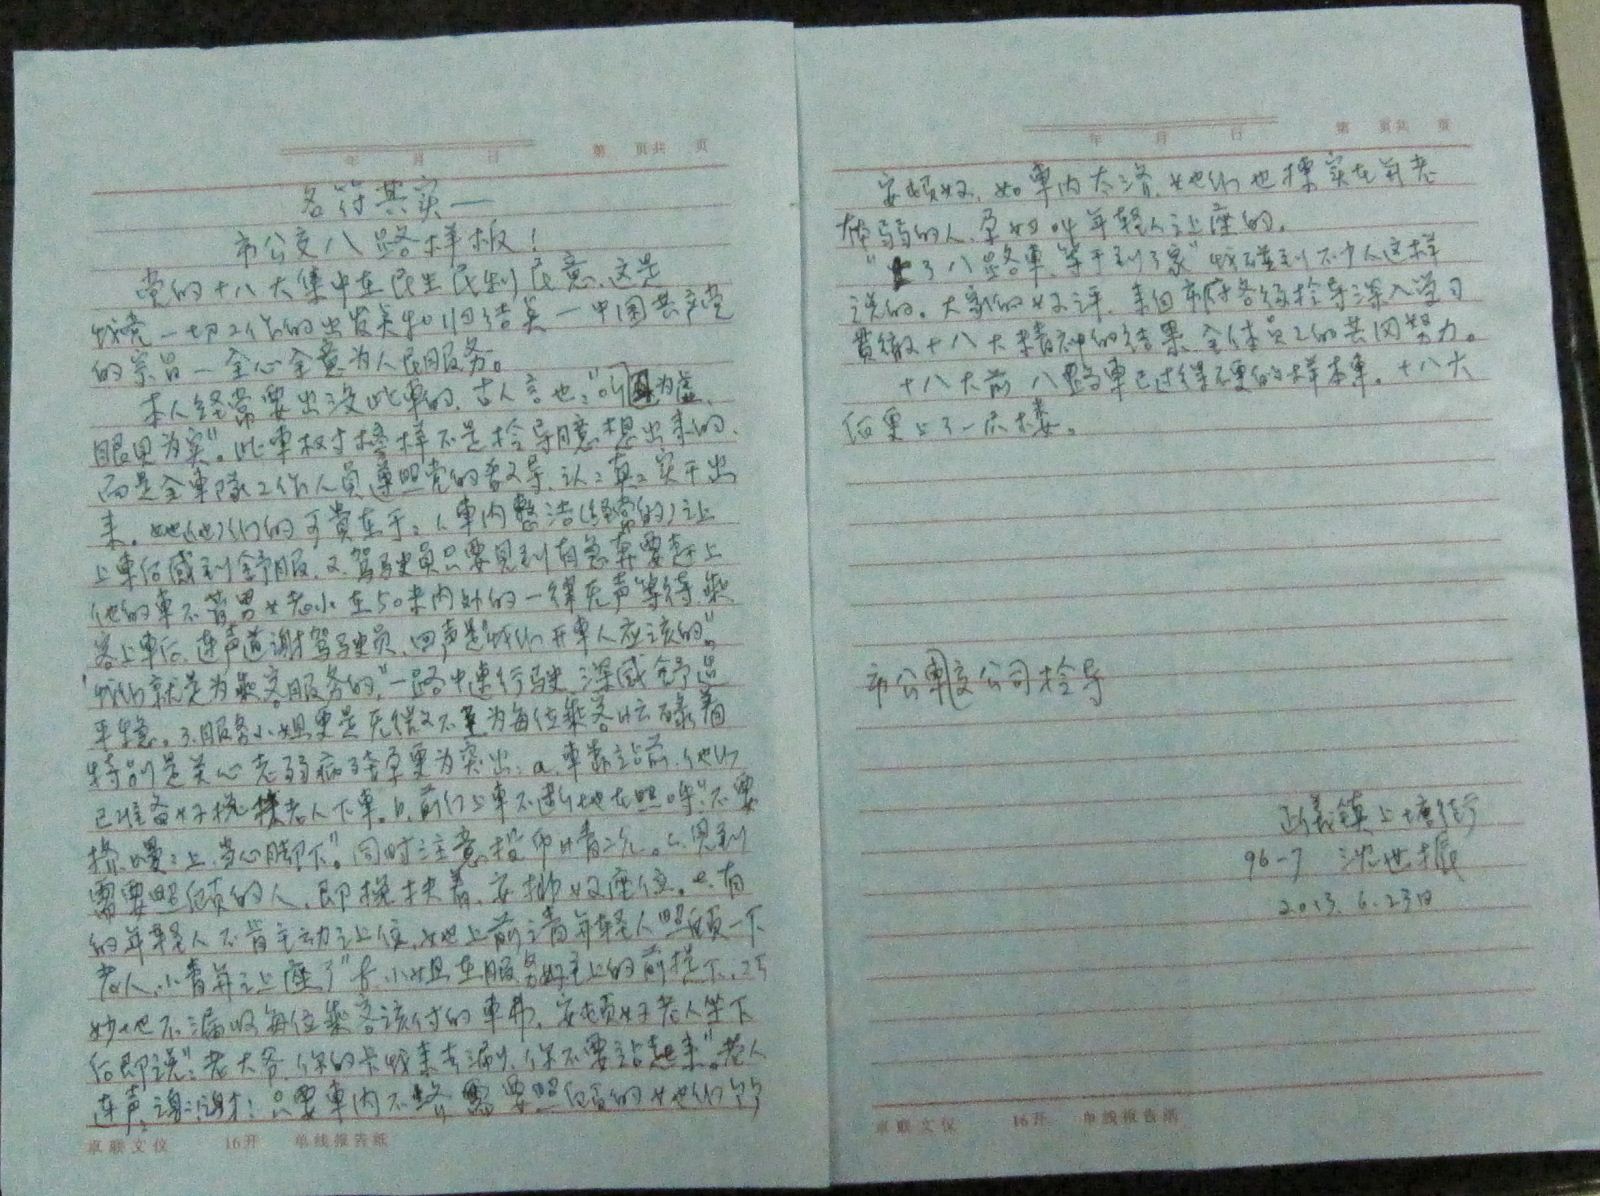 年 月 日 第 页共 页
名符其实一
市公交八路样板！
党的十八大集中在民生民利民意.这是
我党一切工作的出发点和归结点一中国共产党
的宗旨一全心全意为人民服务。
本人经常要出没此車的.古人言也:"听为虚、
眼見为实"。此車 榜样不是 导 想出来的.
而是全車隊工作人员遵照党的教导.认:真:实干出
来。她(他)们的可貴在于:1.車内整洁(经常的)让
上車后感到舒服.2.驾驶員只要見到有急事要赶上
他的車不管男女老小在50米内外的一律无声等待乘
客上車后.连声道谢驾驶员.回声是"我们开車人应该的"。
"我们就是为乘客服务的."一路中速行驶.深感舒适
平稳。3.服务小姐更是无微不至为每位乘客忙碌着
特别是关心老弱病残孕更为突出:a.車靠站前.他们
已准备好搀扶老人下車。b.前门上車不断地在照呼"不要
挤.慢:上.当心脚下"。同时注意投币 。c.見到
需要照顾的人.即搀扶着.安排好座位。e.有
的年轻人不肯主动让位.她上前 请年轻人照顾一下
老人.小青年让座了"f.小姐在服务好 上的前提下.巧
妙地不漏收每位乘客该付的車费.安顿好老人坐下
后即说:"老大爷.你的卡我来去刷.你不要站起来".老人
连声:谢:谢! 只要車内不挤 需要照顾的她们都
安顿好.如車内太挤.她们也 实在前老
体弱的人.孕妇叫年轻人让座的。
"上了八路車.等于到了家"我碰到不少人这样
说的。大家的好评.来自市府各级领导深入学习
貫徹十八大精神的结果.全体员工的共同努力。
十八大前 八路車已 的样本車。十八大
后更上了一层楼。
市公交公司领导
正義镇上塘街
96-7 沈世振
2013.6.23日
卓联文仪 16开 单线报告紙
年 月 日 第 页共 页
卓联文仪 16开 单线报告紙